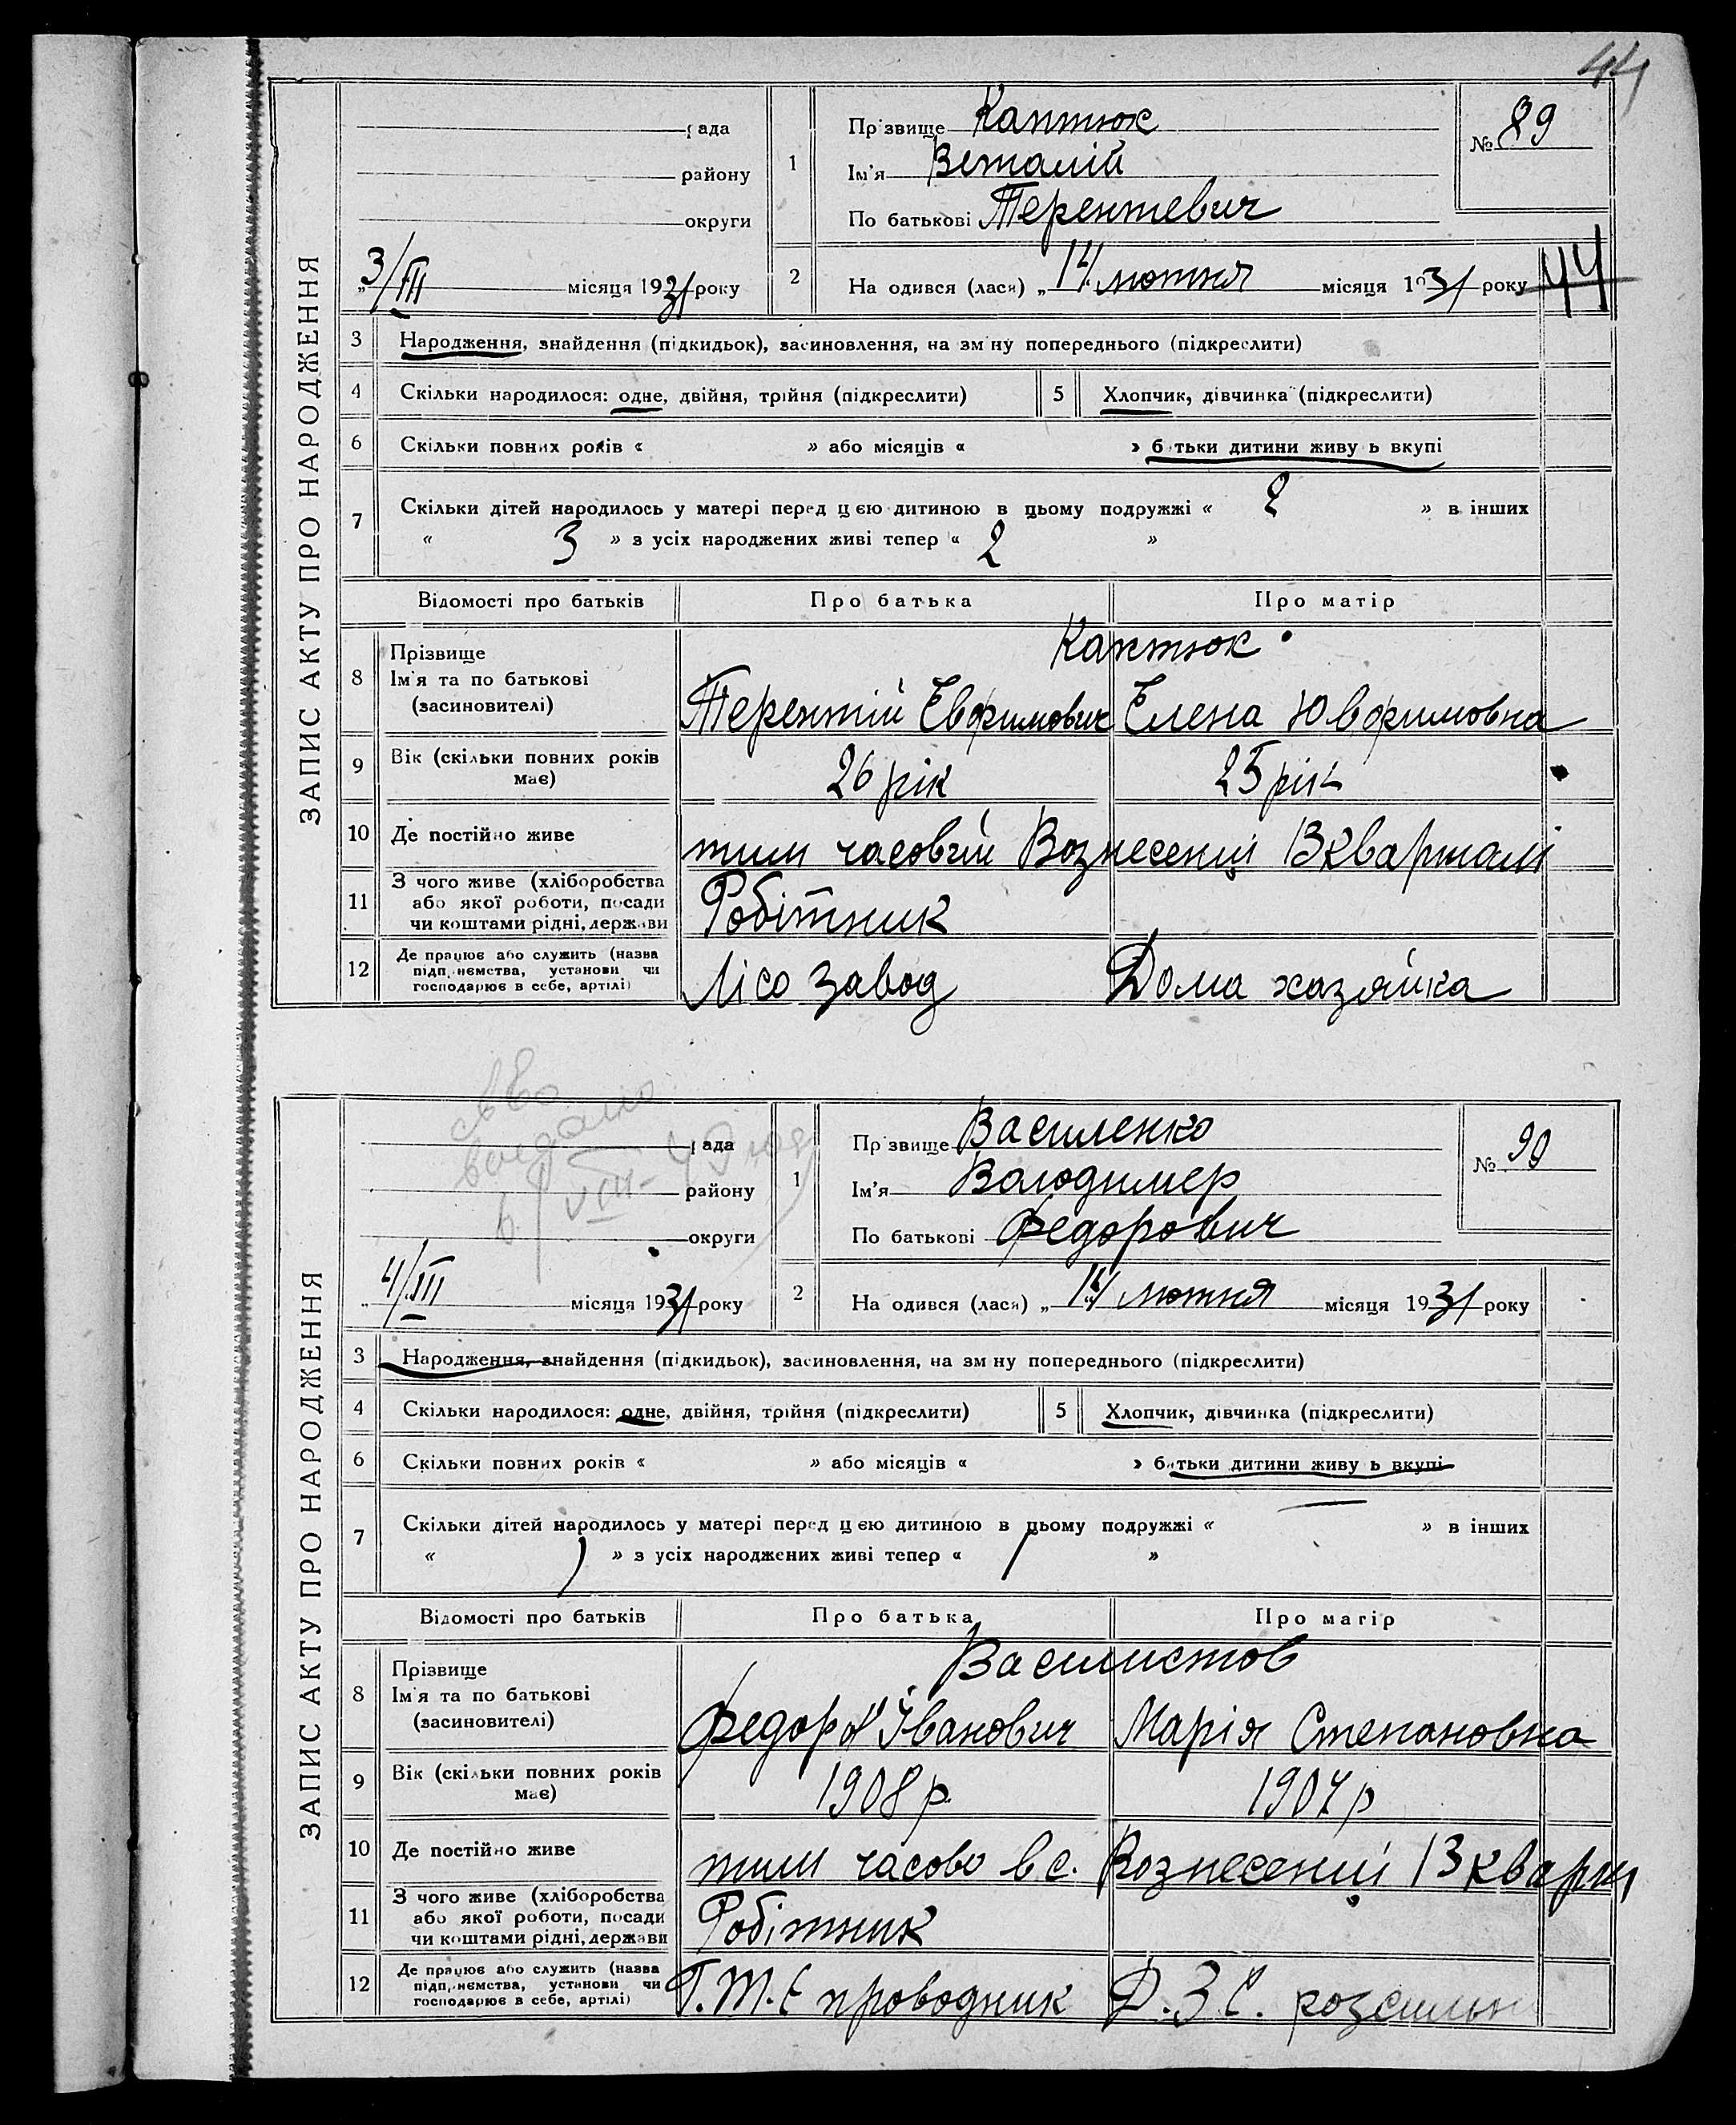 44
ЗАПИС АКТУ ПРО НАРОДЖЕННЯ
рада
району
округи
„3/III місяця 1931 року
1 Прізвище Каптюк
Ім'я Віталій
По батькові Терентевич
№ 89
2 На одився (лася) „14„ лютня місяця 1931 року
44
3 Народження, знайдення (підкидьок), засиновлення, на зм ну попереднього (підкреслити)
4 Скільки народилося: одне, двійня, трійня (підкреслити) 5 Хлопчик, дівчинка (підкреслити)
6 Скільки повних років « » або місяців « » батьки дитини живу ь вкупі
7 Скільки дітей народилось у матері перед цією дитиною в цьому подружжі « 2 » в інших
« 3 » з усіх народжених живі тепер « 2 »
Відомості про батьків Про батька Про матір
8 Прізвище
Ім'я та по батькові
(засиновителі)
Каптюк
Терентій Евфимович Елена Ювфимовна
9 Вік (скільки повних років має) 26 рік 25 рік
10 Де постійно живе тим часовій Вознесенці 13 квартал
11 З чого живе (хліборобства
або якої роботи, посади
чи коштами рідні, держави
Робітник
12 Де працює або служить (назва
підприємства, установи чи
господарює в себе, артілі)
Лісо завод Дома хазяйка
ЗАПИС АКТУ ПРО НАРОДЖЕННЯ
рада
району
округи
„4/III місяця 1931 року
1 Прізвище Василенко
Ім'я Володимер
По батькові Федорович
№ 90
2 На одився (лася) „14„ лютня місяця 1931 року
3 Народження, знайдення (підкидьок), засиновлення, на зм ну попереднього (підкреслити)
4 Скільки народилося: одне, двійня, трійня (підкреслити) 5 Хлопчик, дівчинка (підкреслити)
6 Скільки повних років « » або місяців « » батьки дитини живу ь вкупі
7 Скільки дітей народилось у матері перед цією дитиною в цьому подружжі « — » в інших
« 1 » з усіх народжених живі тепер « 1 »
Відомості про батьків Про батька Про матір
8 Прізвище
Ім'я та по батькові
(засиновителі)
Василистов
Федор Іванович Марія Степановна
9 Вік (скільки повних років має) 1908 р. 1907 р
10 Де постійно живе тим часово в с. Вознесенці 13 кварт
11 З чого живе (хліборобства
або якої роботи, посади
чи коштами рідні, держави
Робітник
12 Де працює або служить (назва
підприємства, установи чи
господарює в себе, артілі)
Г.Т.Є проводник Д.З.С. розсильн